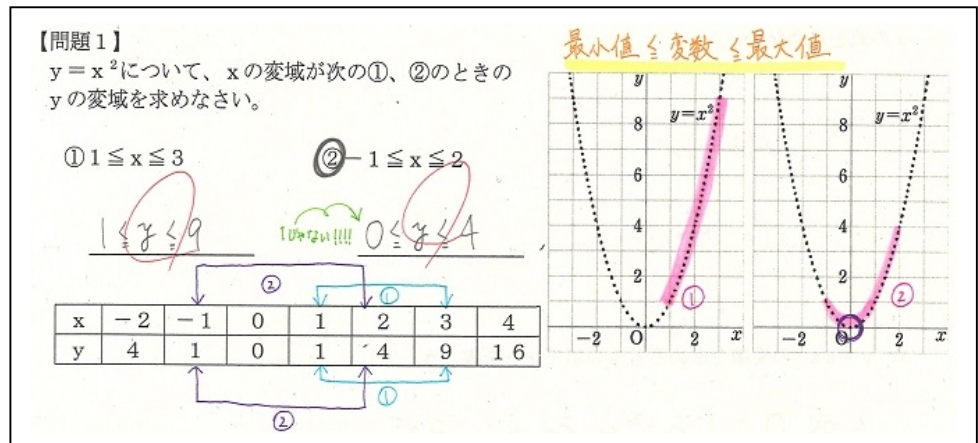 【問題1】
y=x²について、xの変域が次の①、②のときの
yの変域を求めなさい。
①1≦x≦3
②-1≦x≦2
1≦y≦9
1じゃない!!!!
0≦y≦4
②
①
x -2 -1 0 1 2 3 4
y 4 1 0 1 4 9 16
①
②
最小値≦変数≦最大値
y
y=x²
8
6
4
2
①
-2 O 2 x
y
y=x²
8
6
4
2
②
-2 O 2 x